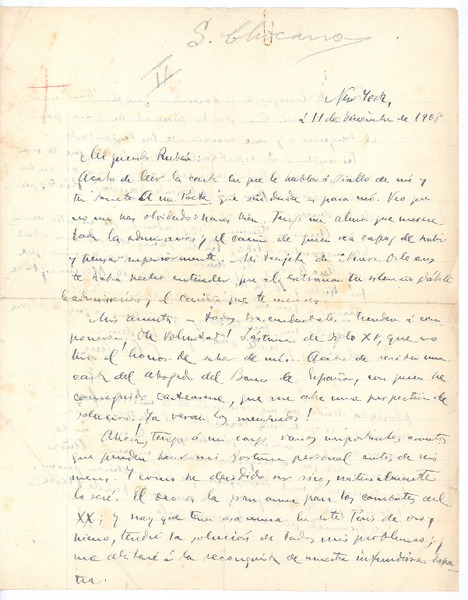 S. Chocano
II
New York,
á 11 de diciembre de 1908
Mi querido Rubén:
Acabo de leer la carta en que le hablas á de mí y
tu soneto A un Poeta que sin duda es para mí. Veo que
no me has olvidado: haces bien. Tienes un alma que merece
toda la admiración y el cariño de quien sea capaz de subir
y pensar superiormente. — Mi tarjeta de Nueva Orleans
te habrá hecho entender que al extrañar tu silencio
la admiración y el cariño que te
Mis asuntos — todos, tienden á com-
ponerse. ¡Oh Voluntad! Lástima de Siglo XV, que no
tuvo el honor de saber de mí. Acabo de recibir una
carta del abogado del Banco de España, con quien he
conseguido cartearme, que me abre una perspectiva de
solución. Ya verán los menguados!
Ahora, tengo á mi cargo varios importantes asuntos
que pueden hacer mi fortuna personal antes de seis
meses. Y como he decidido ser rico, naturalmente
lo seré. El oro es la gran arma para los combates del
XX; y hay que tener esa arma. En este País de oro y
hierro, tendré la solución de todos mis problemas; y
me alistaré á la reconquista de nuestra Espa-
ña.